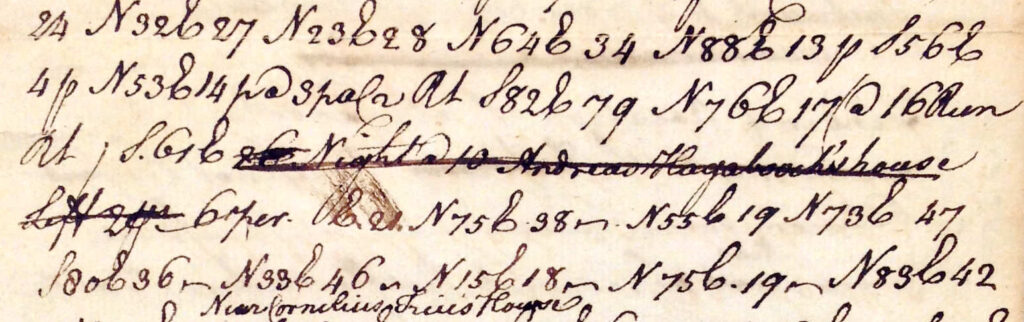 24 N32E 27 N23E 28 N64E 34 N88E 13 p S56E
4 p N53E 14 p @ 3 p a Run At S82E 79 N76E 17 @ 16 Run
At S.61E 26 Night @ 10 Andreas Hagaboock's house
Left 61 per. E. 21. N75E 38 N55E 19 N73E 47
S80E 36 N33E 46 N15E 18 N75E. 19 N83E 42
Near Cornilius House